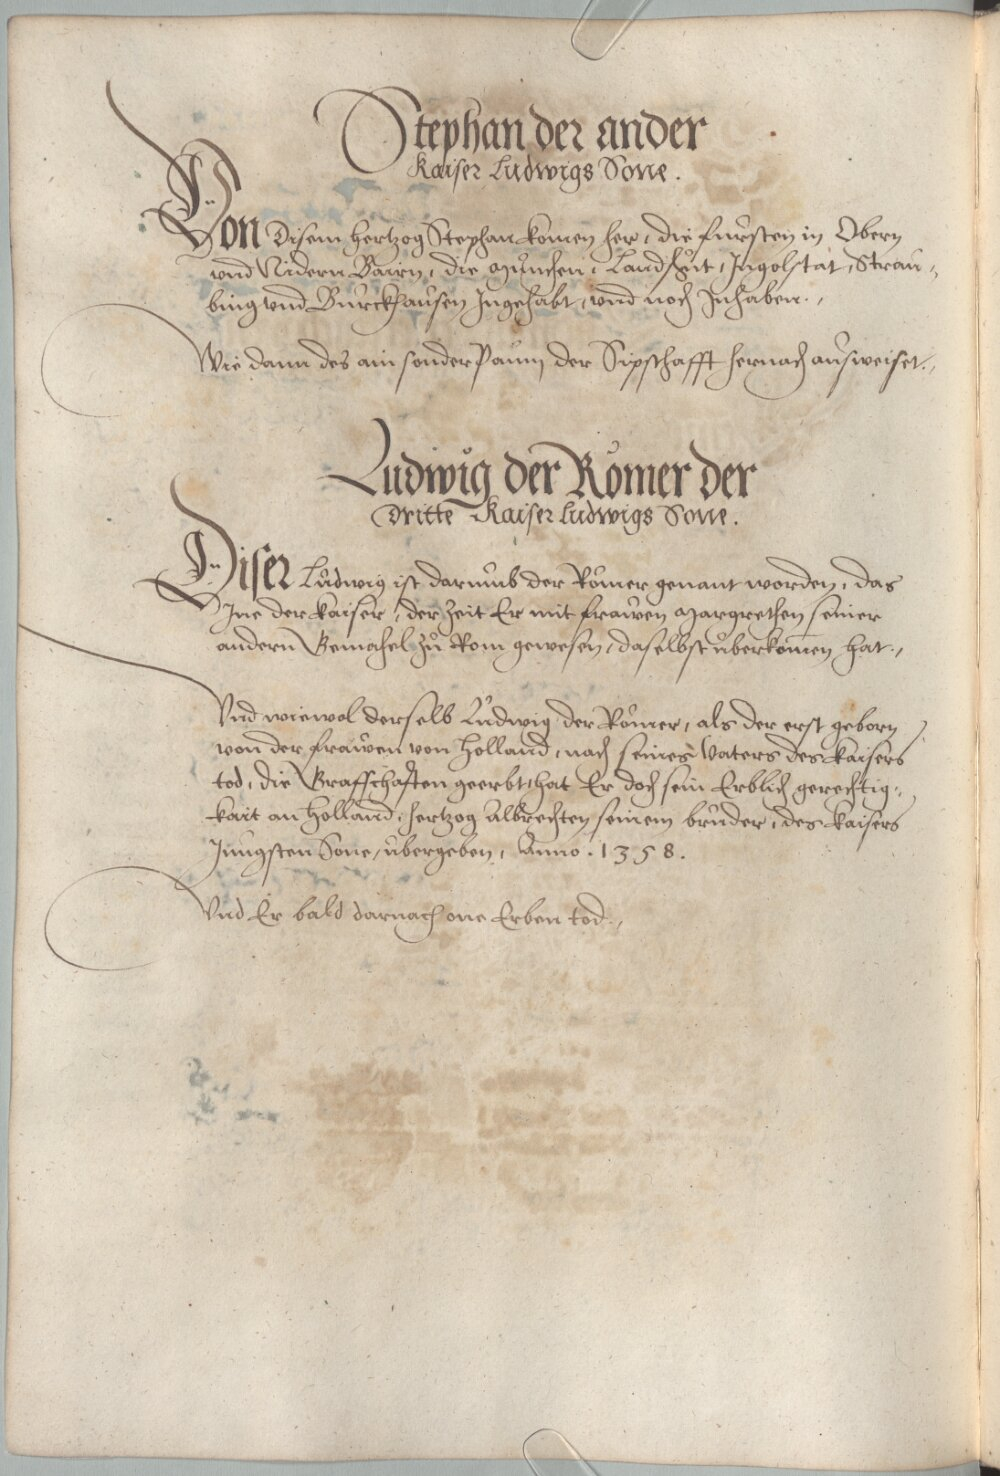 Stephan der ander
Kaiser Ludwigs Sone.
Von disem hertzog Stephan komen her, die fürsten in Obern
vnd Nidern Bairn, die München, Landßhüt, Ingolstat, Strau-
bing vnd Burckhausen Ingehabt, vnd noch Inhaben.
Wie dann des ain sonder Paum der Sipschafft hernach ausweiset.
Ludwig der Römer der
dritte Kaiser Ludwigs Sone.
Diser Ludwig ist darumb der Römer genant worden, das
Ine der kaiser, der Zeit Er mit frawen Margrethen seiner
andern Gemahel zu Rom gewesen, daselbst überkomen hat.
Vnd wiewol derselb Ludwig der Römer, als der erst geborn
von der frawen von Holland, nach seines Vaters des kaisers
tod, die Graffschafften geerbt, hat Er doch sein Erblich gerechtig-
kait an Holland, hertzog Albrechten seinem bruder, des kaisers
Jungsten Sone, übergeben, Anno . 1358 .
Vnd Er bald darnach one Erben tod.